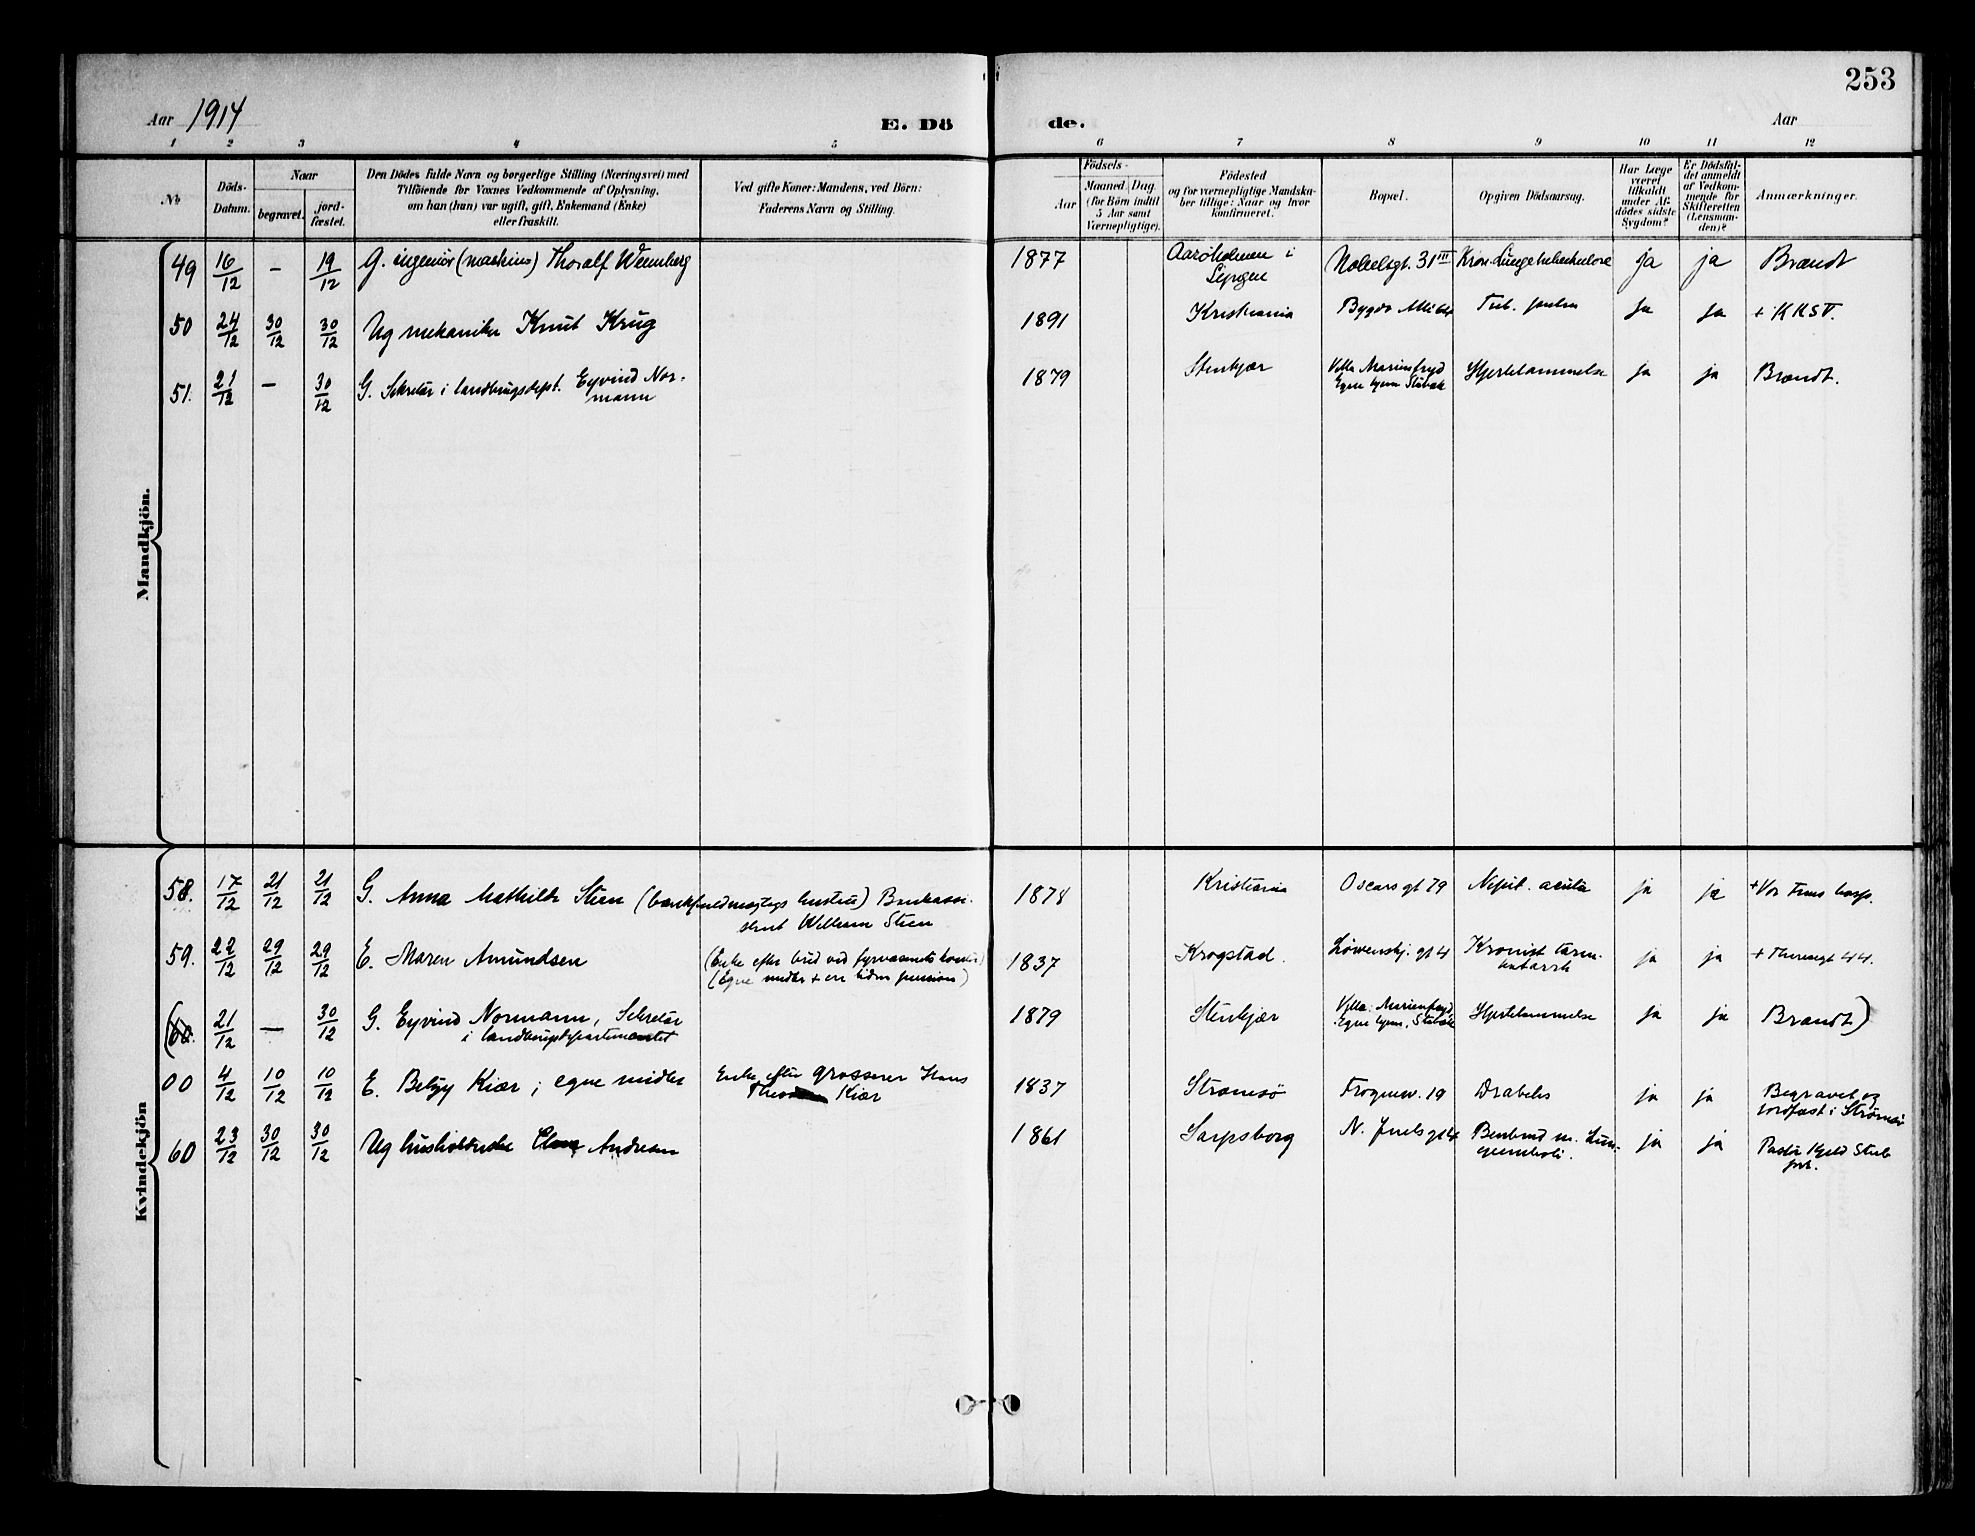 253
Aar 1914
E. Dö
de.
Aar
1 2 3 4 5 6 7 8 9 10 11 12
No
Döds-
Datum.
Naar
begravet.
jord-
fæstet.
Den Dödes fulde Navn og borgerlige Stilling (Næringsvei) med
Tilföiende for Voxnes Vedkommende af Oplysning,
om han (hun) var ugift, gift, Enkemand (Enke)
eller fraskilt.
Ved gifte Koner: Mandens, ved Börn:
Faderens Navn og Stilling.
Födsels-
Aar
Maaned Dag
(for Börn indtil
5 Aar samt
Værnepligtige).
Födested
og for værnepligtige Mandska-
ber tillige: Naar og hvor
konfirmeret.
Bopæl.
Opgiven Dödsaarsag.
Har Læge
været
tilkaldt
under Af-
dödes sidste
Sygdom?
Er Dödsfal-
det anmeldt
af Vedkom-
mende for
Skifteretten
(Lensman-
den)?
Anmærkninger.
Mandkjön.
49 16/12 – 19/12 G. ingeniør (maskin) Thoralf Wennberg 1877 Aarøholmen i Nobelsgt. 31 III Kron. Lungetuberkulose ja ja Brandt
50 24/12 30/12 30/12 Ug mekaniker Knut Krug 1891 Kristiania Bygdø Allé Tub. ja ja +
51. 21/12 – 30/12 G. Sekretær i landbrugsdept. Eyvind Nor-
mann 1879 Stenkjær Villa Marienfryd
Egne hjem Stabæk Hjertelammelse ja ja Brandt.
Kvindekjön
58. 17/12 21/12 21/12 G. Anna Mathilde Steen (bankfuldmægtigs hustru) Bankassi-
stent William Steen 1878 Kristiania Oscars gt 79 Nefrit. acuta ja ja + Vor Frues hosp.
59. 22/12 29/12 29/12 E. Maren Amundsen (Enke efter bud ved fyrvæsenets kontor)
(Egne midler + en liden pension) 1837 Krogstad. Løwenskj. gt 4 Kronisk tarm-
katarrh ja ja + Theresegt 44.
(60. 21/12 – 30/12 G. Eyvind Normann, Sekretær
i landbrugsdepartementet 1879 Stenkjær Villa Marienfryd,
Egne hjem, Stabæk Hjertelammelse ja ja Brandt)
00 4/12 10/12 10/12 E. Betzy Kiær; egne midler Enke efter grosserer Hans
Kiær 1837 Strømsø Frognerv. 19 Diabetes ja ja Begravet og
jordfæst i Strømsø
60 23/12 30/12 30/12 Ug husholderske Andrea 1861 Sarpsborg N. Juels gt 4 Benbrud m. Lun-
geemboli. ja ja Pastor Kjeld Stub